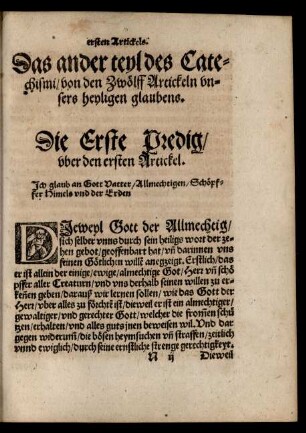 ersten Artickels.
Das ander teyl des Cate-
chismi/von den Zwölff Artickeln vn-
sers heyligen glaubens.
Die Erste Predig/
vber den ersten Artickel.
Ich glaub an Gott Vatter/Allmechtigen/Schöpf-
fer Himels vnd der Erden
DJeweyl Gott der Allmechtig/
sich selber vnns durch sein heiligs wort der ze-
hen gebot/geoffenbart hat/vñ darinnen vns
seinen Götlichen willẽ angezeigt. Erstlich/das
er ist allein der einige/ewige/almechtige Got/Herr vñ schö
pffer aller Creaturn/vnd vns derhalb seinen willen zu er-
keñen geben/darauß wir lernen sollen/wie das Gott der
Herr/vber alles zu förcht ist/dieweil er ist ein almechtiger/
gewaltiger/vnd gerechter Gott/welcher die from̃en schü
tzen/erhalten/vnd alles guts jnen beweisen wil. Vnd dar
gegen widerum̃/die bösen heymsuchen vñ straffen/zeitlich
vnnd ewiglich/durch seine ernstliche strenge gerechtigkeyt.
N ij Dieweil